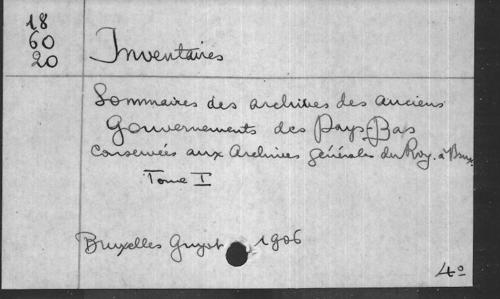 18
60
20
Inventaires
Sommaires des archives des anciens
Gouvernements des Pays-Bas
conservées aux Archives générales du Roy. à Brux.
Tome I
Bruxelles Guyot 1906
4º